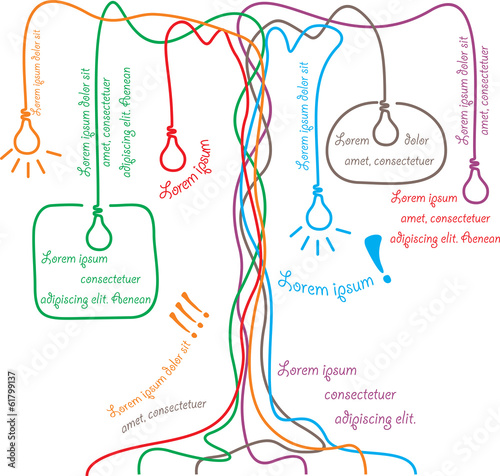 Lorem ipsum dolor sit
Lorem ipsum dolor sit
amet, consectetuer
adipiscing elit. Aenean
Lorem ipsum
Lorem ipsum dolor sit
Lorem dolor
amet, consectetuer
Lorem ipsum dolor sit
amet, consectetuer
Lorem ipsum
amet, consectetuer
adipiscing elit. Aenean
Lorem ipsum
consectetuer
adipiscing elit. Aenean
Lorem ipsum !
Lorem ipsum dolor sit !!!
amet, consectetuer
Lorem ipsum
consectetuer
adipiscing elit.
Adobe Stock | #61799137